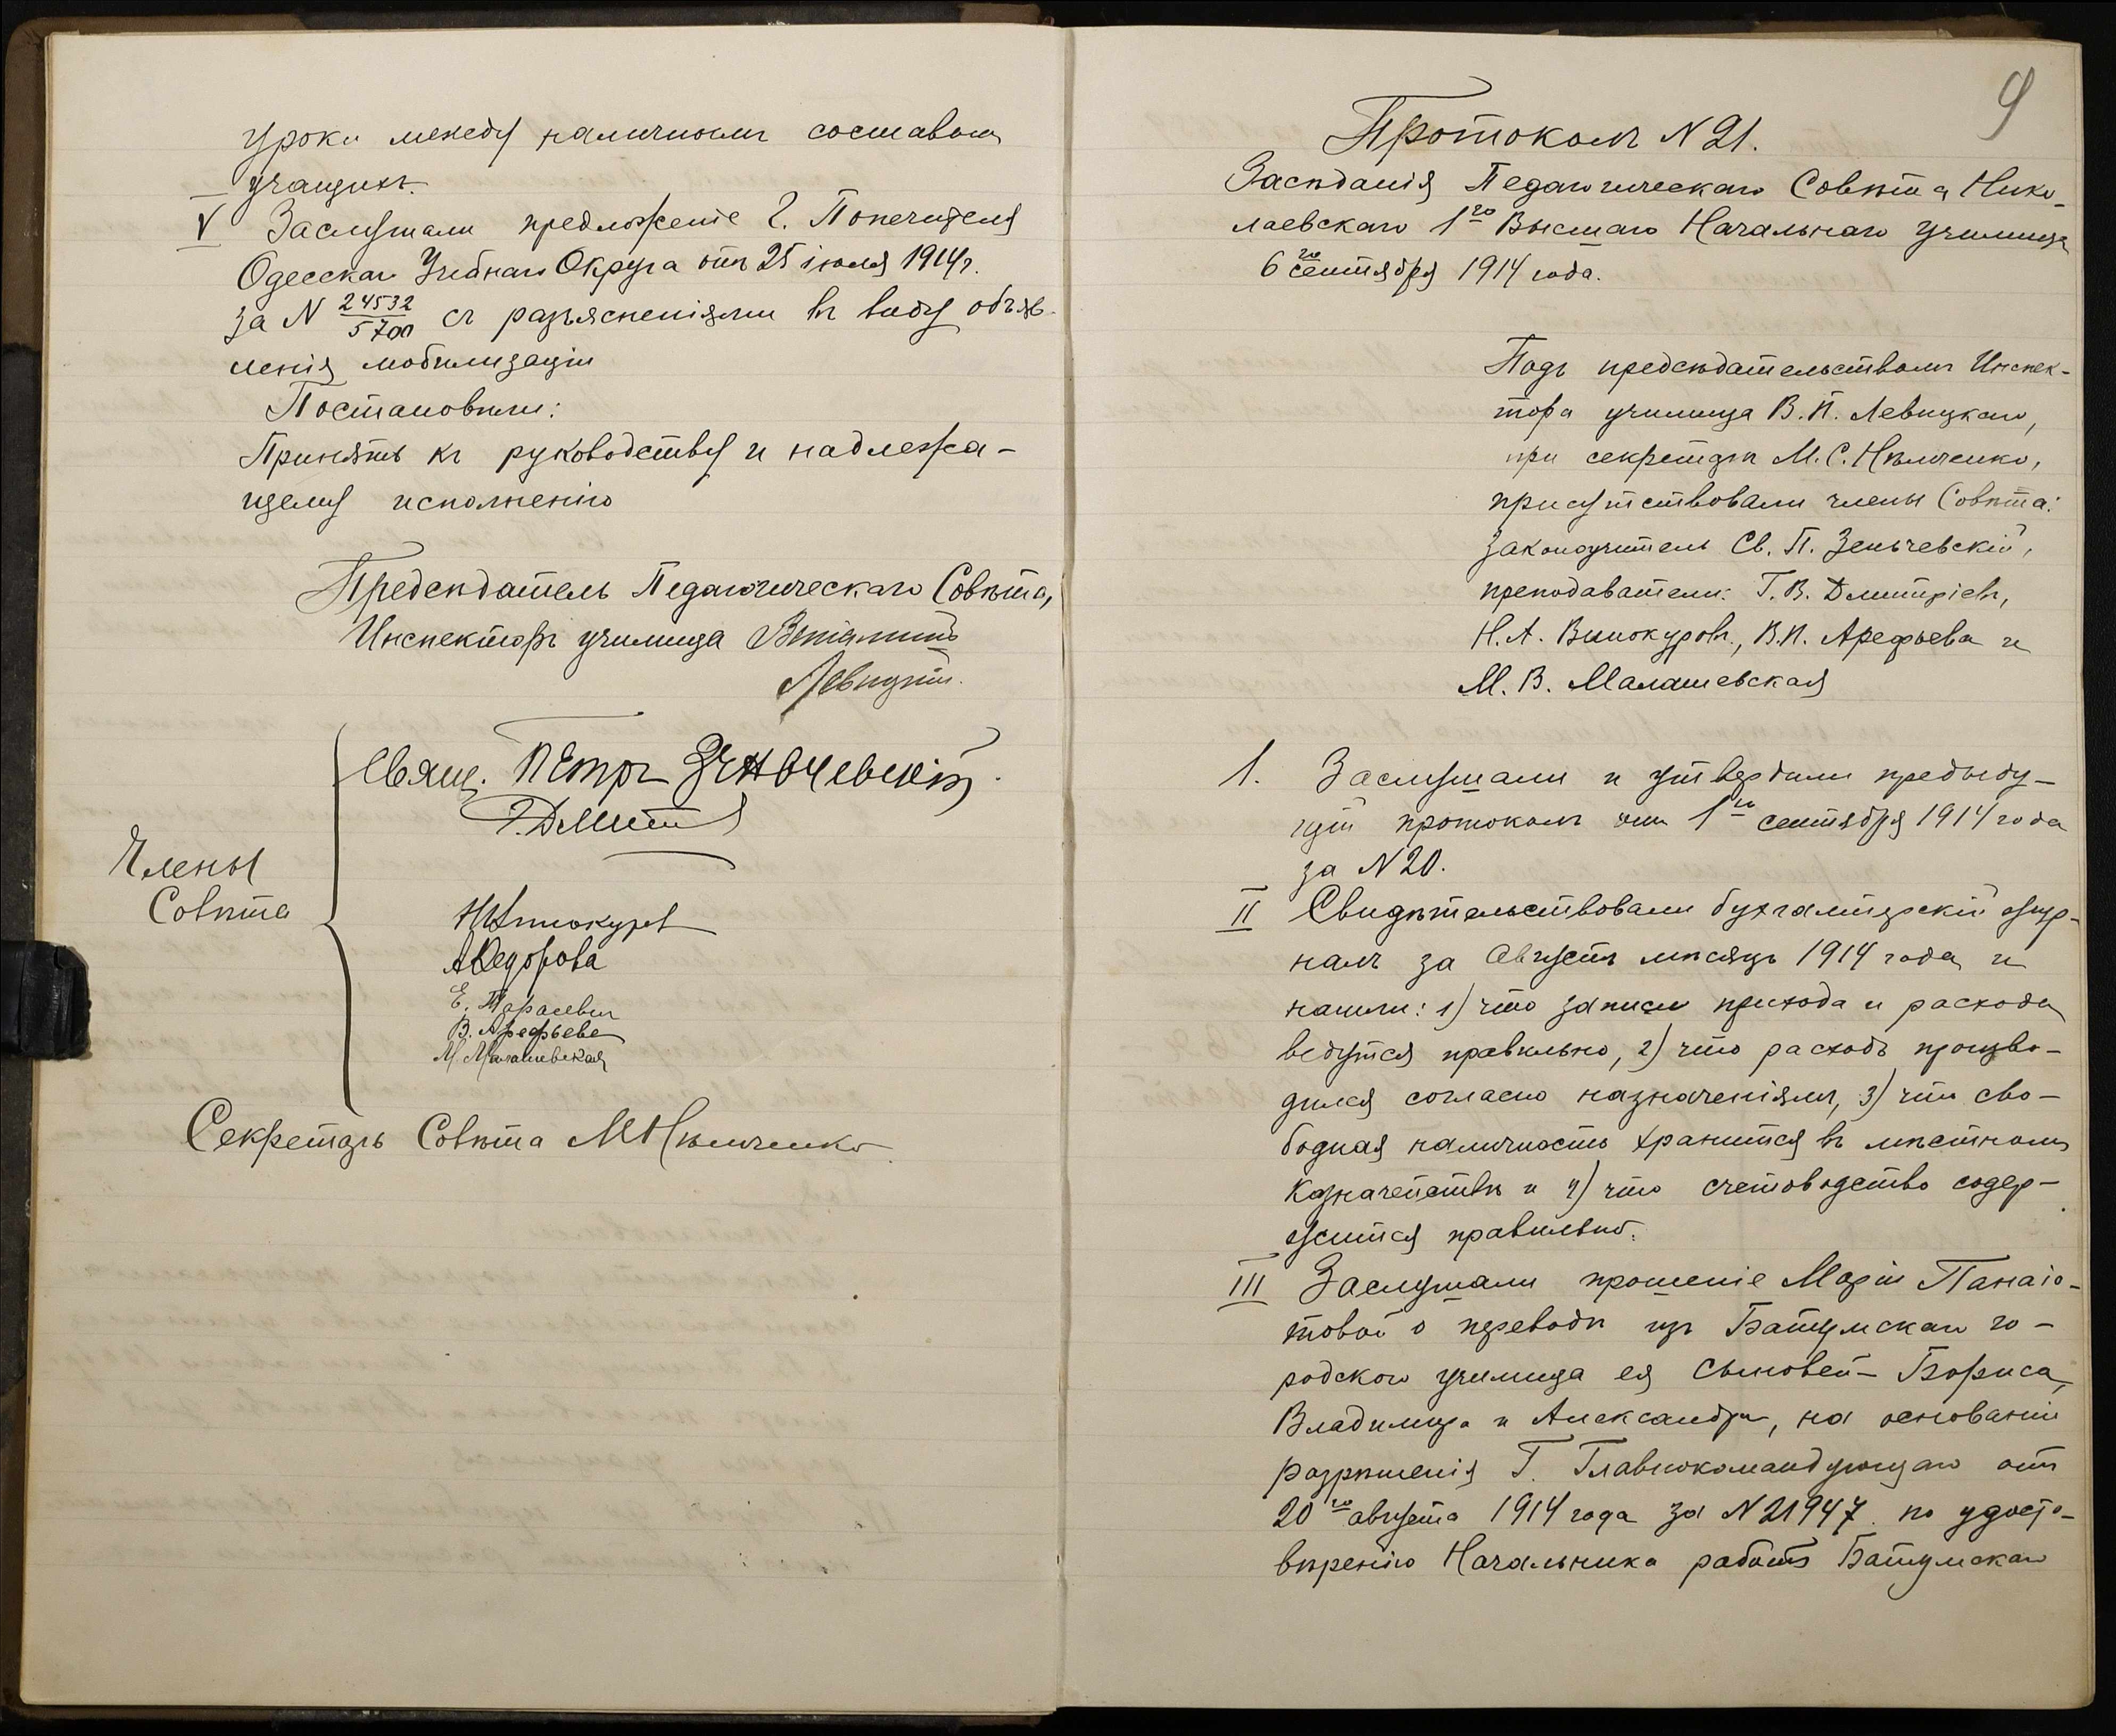 уроки между наличнымъ составомъ
учащихъ.
V Заслушали предложеніе Г. Попечителя
Одесскаго Учебнаго Округа отъ 25 іюля 1914 г.
за N 24532/5700 съ разъясненіями въ виду объяв-
ленія мобилизаціи
Постановили:
Принять къ руководству и надлежа-
щему исполненію
Предсѣдатель Педагогическаго Совѣта,
Инспекторъ училища Виталій
Левицкій.
Свящ. Петръ Зеньчевскій.
Г. Дмит
Члены
Совѣта
Н Винокуровъ
А Федорова
Е. Тарасевичъ
В. Арефьева
М. Малашевская
Секретарь Совѣта М Нѣмченко
9
Протоколъ N 21.
Засѣданія Педагогическаго Совѣта Нико-
лаевскаго 1го Высшаго Начальнаго училища
6го сентября 1914 года.
Подъ предсѣдательствомъ Инспек-
тора училища В. П. Левицкаго,
при секретарѣ М. С. Нѣмченко,
присутствовали члены Совѣта:
законоучитель Св. П. Зеньчевскій,
преподаватели: Г. В. Дмитріевъ,
Н. А. Винокуровъ, В. П. Арефьева и
М. В. Малашевская
1. Заслушали и утвердили предыду-
щій протоколъ отъ 1го сентября 1914 года
за N 20.
II Свидѣтельствовали бухгалтерскій жур-
налъ за Августъ мѣсяцъ 1914 года и
нашли: 1) что записи прихода и расхода
ведутся правильно, 2) что расходъ произво-
дился согласно назначеніямъ, 3) что сво-
бодная наличность хранится въ мѣстномъ
Казначействѣ и 4) что счетоводство содер-
жится правильно.
III Заслушали прошеніе Маріи Панаіо-
товой о переводѣ изъ Батумскаго го-
родского училища ея сыновей - Бориса,
Владимира и Александра, на основаніи
разрѣшенія Г. Главнокомандующаго отъ
20го августа 1914 года за N 21947 по удосто-
вѣренію Начальника работъ Батумскаго